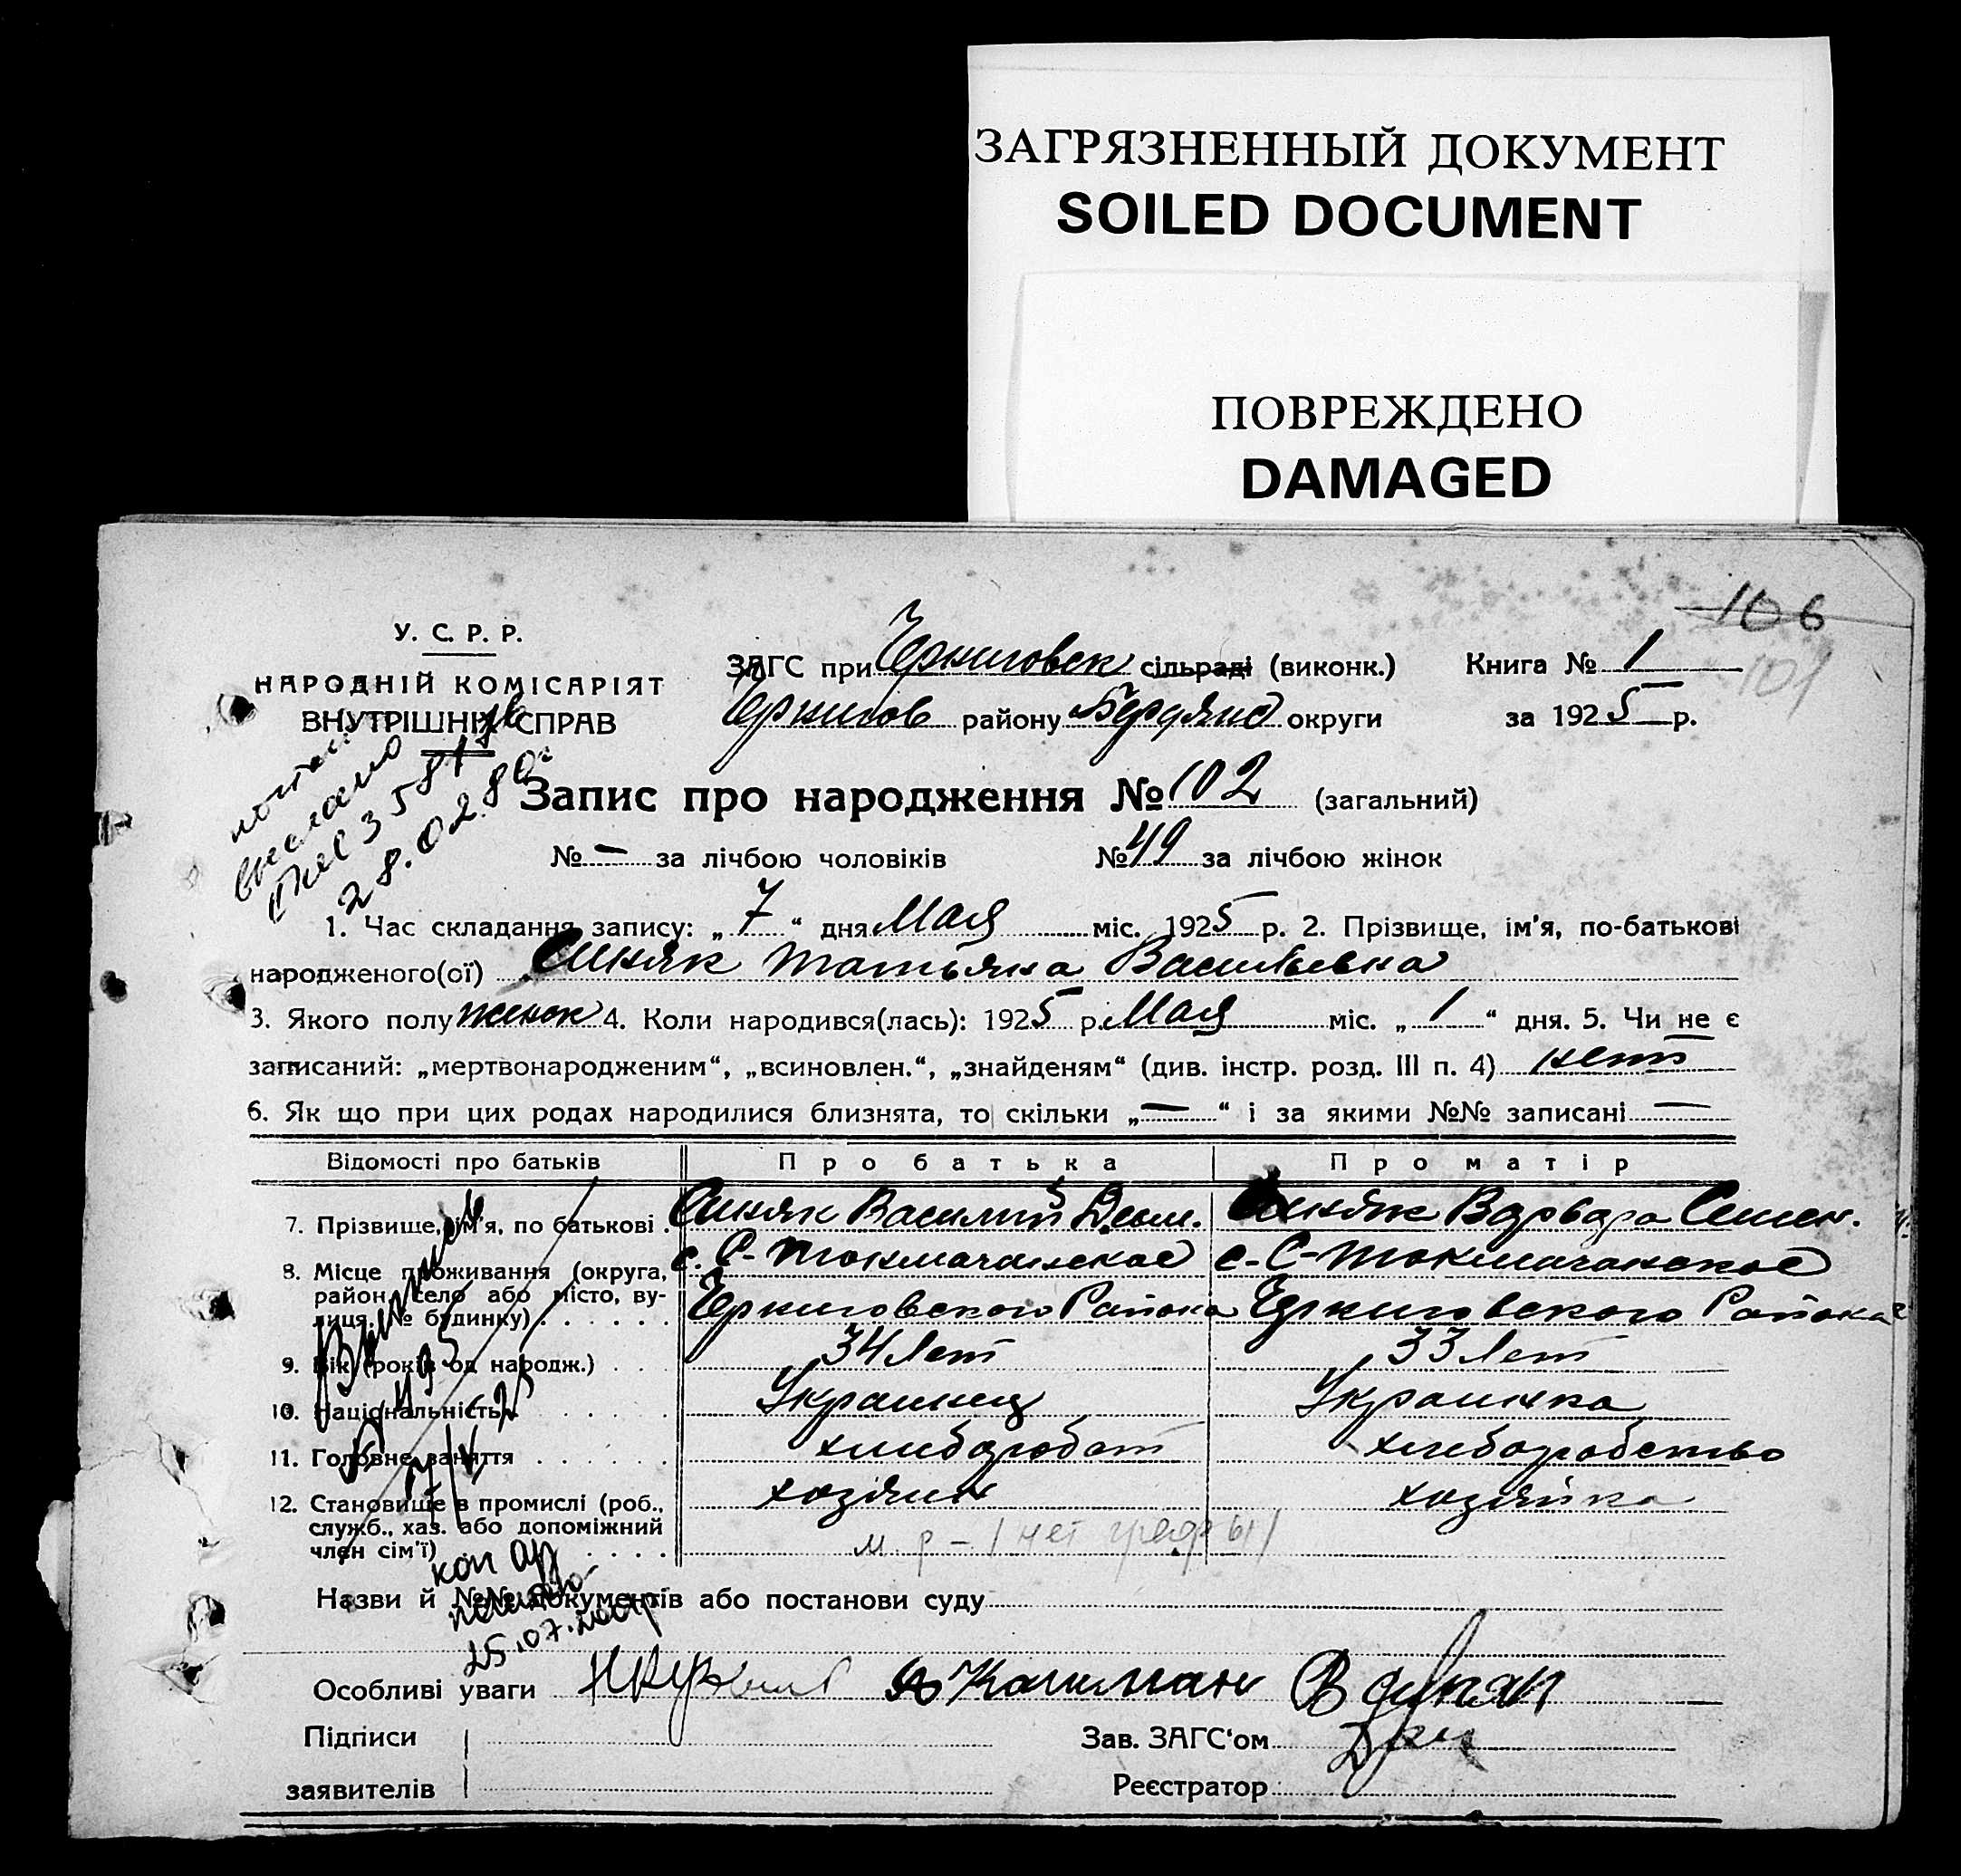 ЗАГРЯЗНЕННЫЙ ДОКУМЕНТ
SOILED DOCUMENT
ПОВРЕЖДЕНО
DAMAGED
106
101
У. С. Р. Р.
НАРОДНІЙ КОМІСАРІЯТ
ВНУТРІШНІХ СПРАВ
ЗАГС при Черниговск сільраді (виконк.) Книга № 1
Чернигов району Бердянс округи за 1925 р.
выслано
28.02.80
Запис про народження № 102 (загальний)
№ — за лічбою чоловіків № 49 за лічбою жінок
1. Час складання запису: „ 7 “ дня Мая міс. 1925 р. 2. Прізвище, ім'я, по-батькові
народженого(ої) Синяк Татьяна Васильевна
3. Якого полу женск 4. Коли народився(лась): 1925 р. Мая міс. „ 1 “ дня. 5. Чи не є
записаний: „мертвонародженим“, „всиновлен.“, „знайденям“ (див. інстр. розд. III п. 4) нет
6. Як що при цих родах народилися близнята, то скільки „ — “ і за якими №№ записані —
Відомості про батьків Про батька Про матір
7. Прізвище, ім'я, по батькові . Синяк Василий Дем. Синяк Варвара Семен.
8. Місце проживання (округа, с. С-Токмачанское с. С-Токмачанское
район, село або місто, ву-
лиця, № будинку) . . . . . . Черниговского Района Черниговского Района
9. Вік (років од народж.) . . . 34 Лет 33 Лет
10. Національність . . . . . . Украинец Украинка
11. Головне заняття . . . . . . хлибороб хлиборобство
12. Становище в промислі (роб., хозяин хозяйка
служб., хаз. або допоміжний
член сім'ї) . . . . . м. р - (нет графы)
Назви й №№ документів або постанови суду
25.07.
Особливі уваги
Підписи Зав. ЗАГС‘ом
заявителів Реєстратор